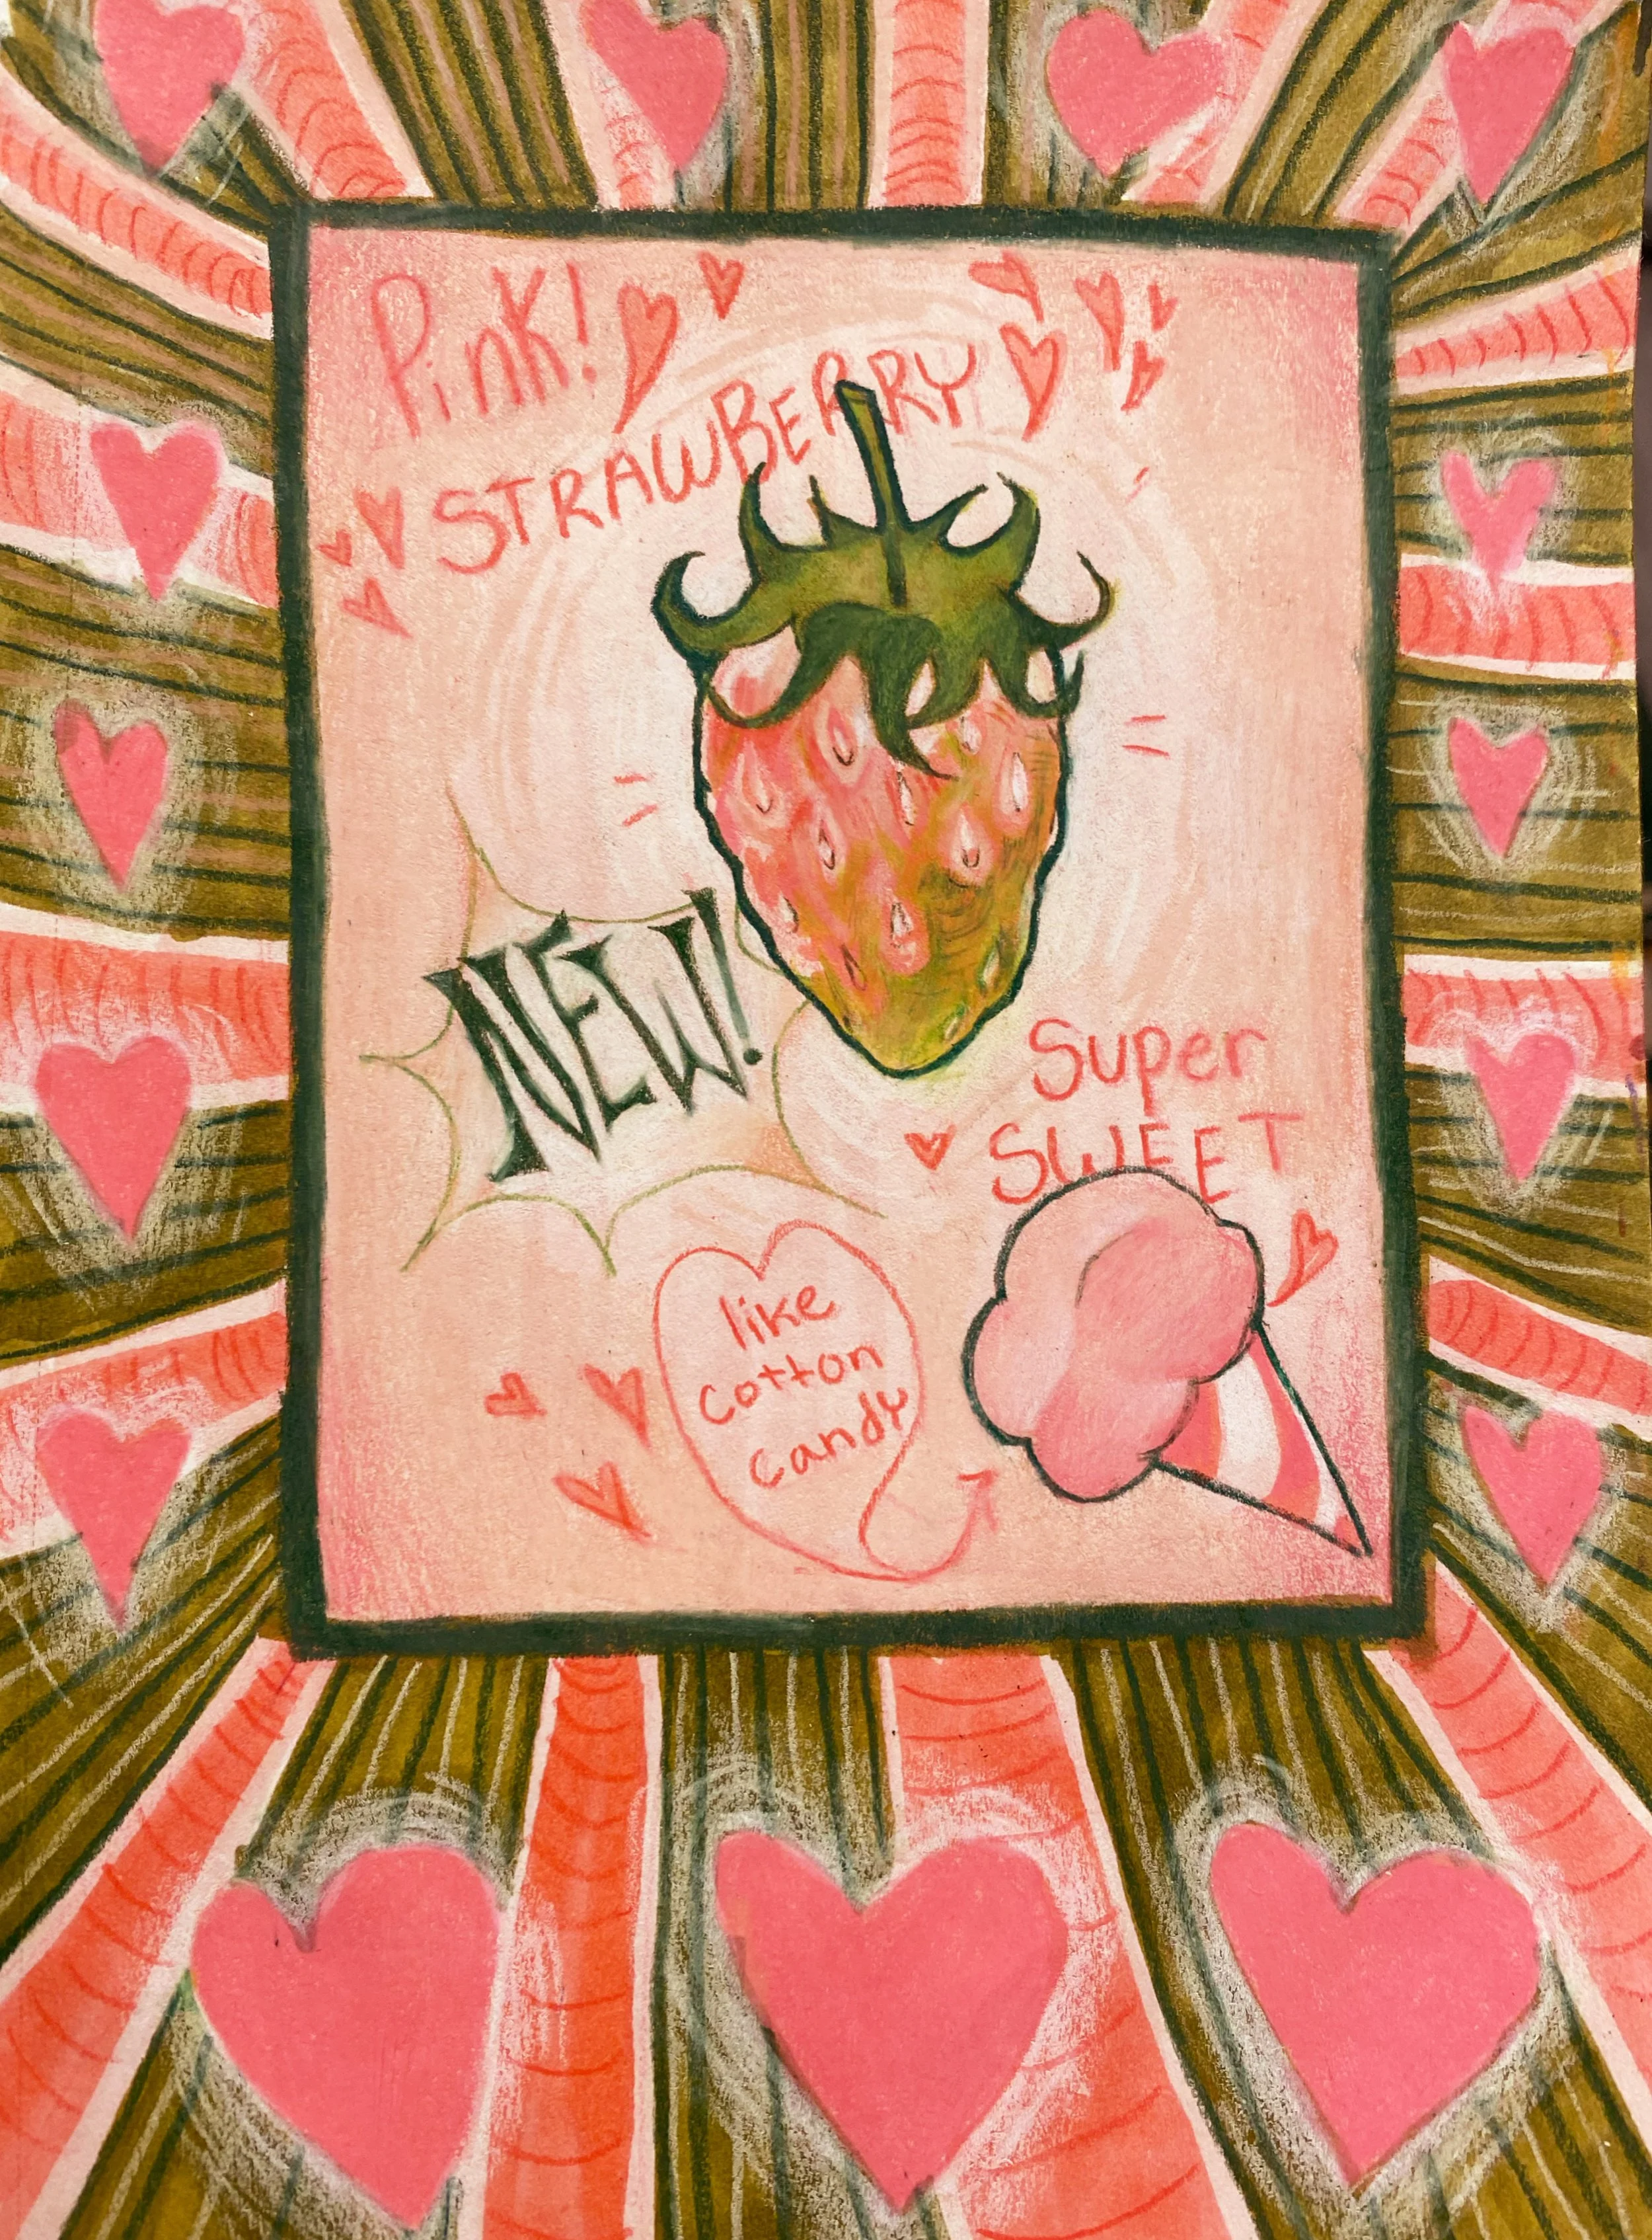 Pink!
STRAWBERRY
NEW!
Super
SWEET
like
cotton
candy